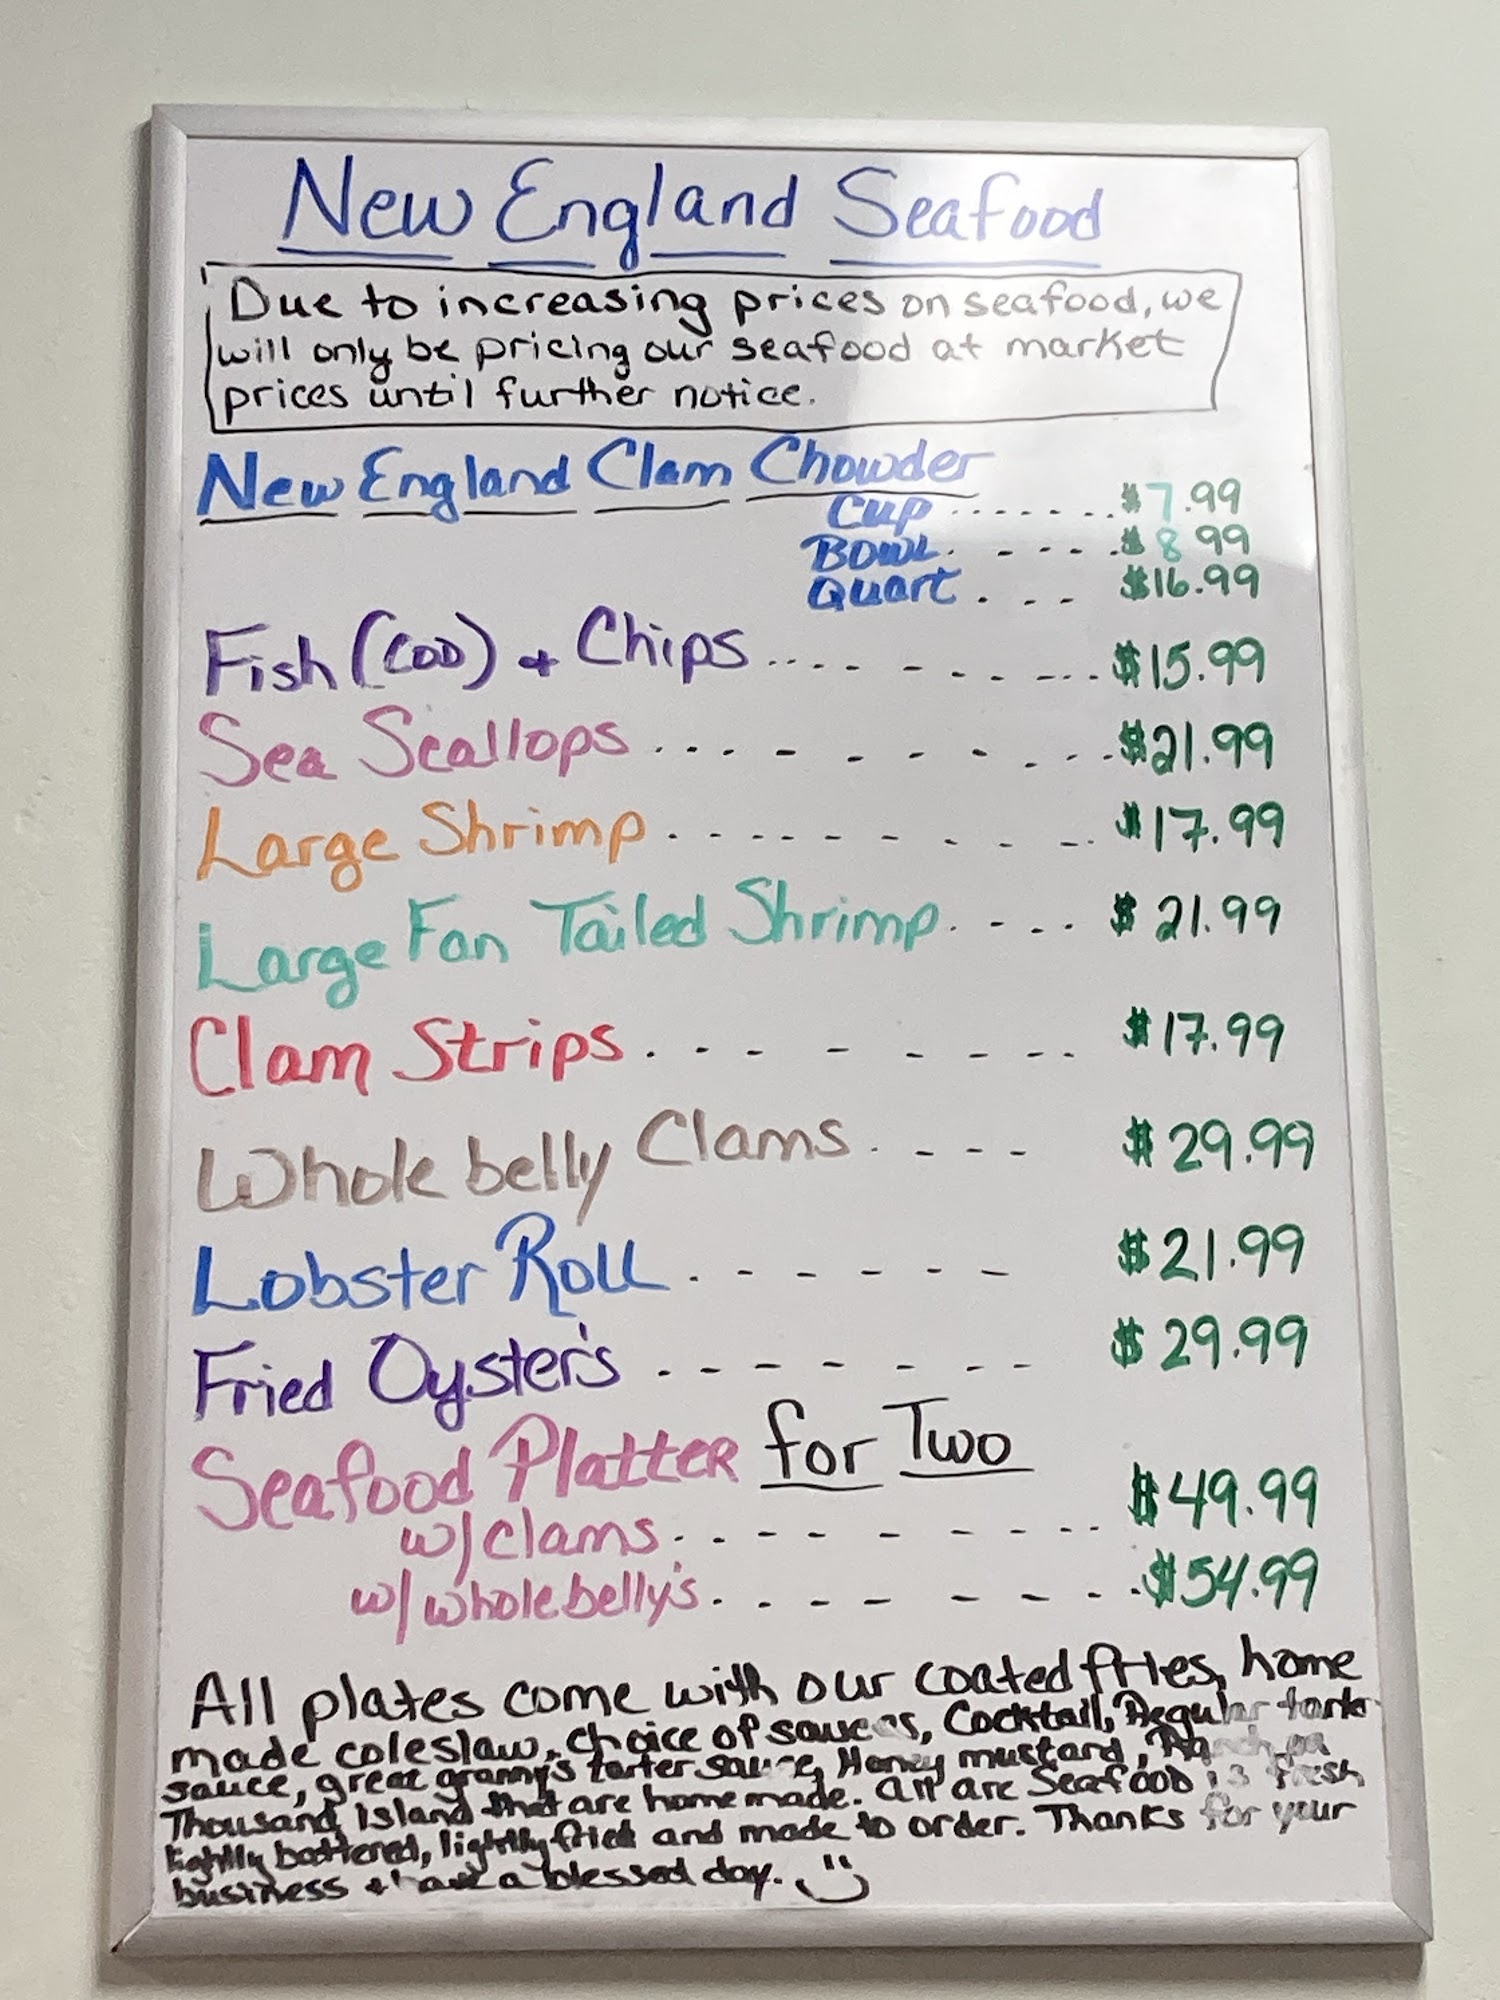 New England Seafood
Due to increasing prices on seafood, we
will only be pricing our seafood at market
prices until further notice.
New England Clam Chowder
Cup ........ $7.99
Bowl. . - - - . $8.99
Quart . - - - $16.99
Fish (COD) + Chips .... - - - - - ... $15.99
Sea Scallops ... - - - - - - ... $21.99
Large Shrimp . - - - - - - - - - . $17.99
Large Fan Tailed Shrimp. - - . . $21.99
Clam Strips . - - - - - - - - $17.99
Whole belly Clams . - - - $29.99
Lobster Roll . - - - - - - $21.99
Fried Oyster's . - - - - - - - $29.99
Seafood Platter for Two
w/clams. - - - - - - - - .. $49.99
w/wholebelly's. . - - - - - - - . $54.99
All plates come with our coated fries, home
made coleslaw, choice of sauces, Cocktail, Regular
sauce, great granny's tarter sauce, Honey mustard,
Thousand Island that are homemade. All are Seafood is fresh
lightly battered, lightly fried and made to order. Thanks for your
business + have a blessed day.